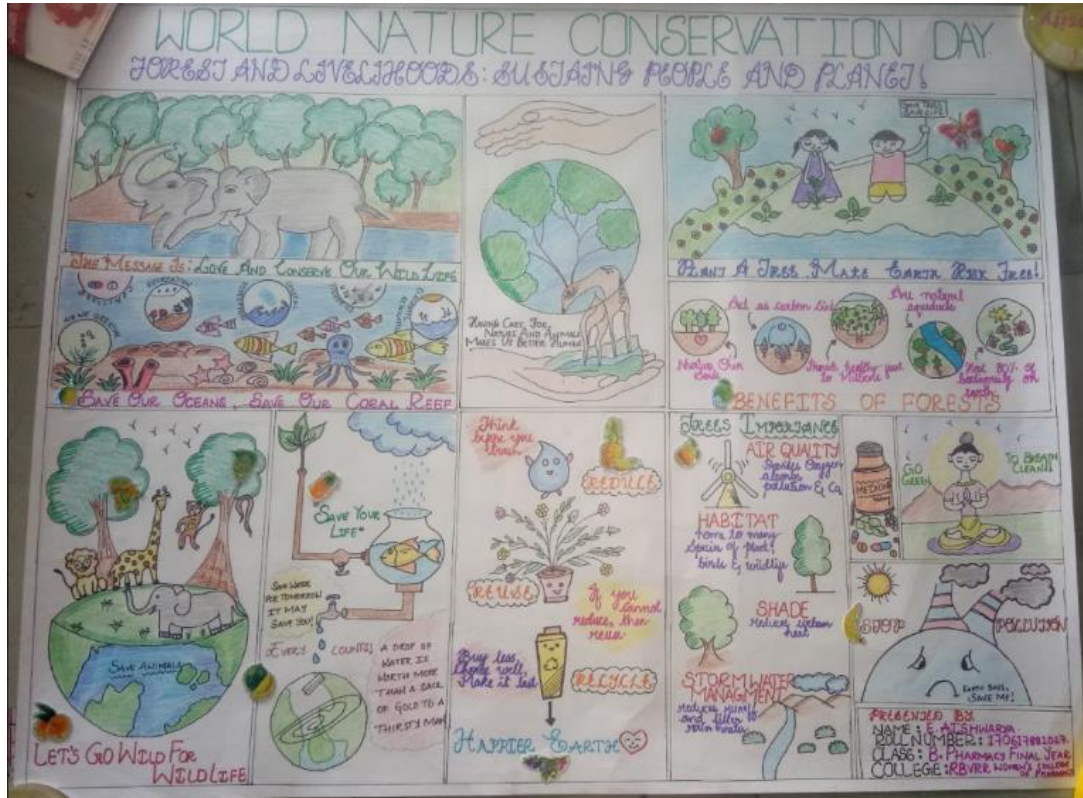 WORLD NATURE CONSERVATION DAY
FOREST AND LIVELIHOODS: SUSTAING PEOPLE AND PLANET!
SAVE TREES
SAVE LIFE
THE MESSAGE IS: LOVE AND CONSERVE OUR WILD LIFE
HAVING CARE FOR
NATURE AND ANIMALS
MAKES US BETTER HUMAN
PLANT A TREE, MAKE EARTH RISK FREE!
SAVE OUR OCEANS, SAVE OUR CORAL REEF
Act as carbon sink
Are natural
aqueducts
Provide healthy
to Millions
80% of
biodiversity on
earth
BENEFITS OF FORESTS
SAVE ANIMALS
LET'S GO WILD FOR
WILD LIFE
"SAVE YOUR
LIFE"
SAVE WATER
FOR TOMORROW
IT MAY
SAVE YOU!
EVERY COUNTS!
A DROP OF
WATER IS
WORTH MORE
THAN A SACK
OF GOLD TO A
THIRSTY MAN
Think
before you
trash
REDUCE
REUSE
If you
cannot
reduce, then
reuse
Buy less,
choose well,
Make it last
RECYCLE
HAPPIER EARTH
TREES IMPORTANCE
AIR QUALITY
Provides Oxygen
absorbs
pollution &
HABITAT
home to many
of plant,
birds & wildlife
SHADE
reduces urban
heat
STORM WATER
MANAGMENT
reduces
and filter
rain water
MEDICINE
GO
GREEN
TO BREATH
CLEAN!!
STOP POLLUTION
SAVE ME!
PRESENTED BY
NAME: E. AISHWARYA
ROLL NUMBER: 170617881027
CLASS: B. PHARMACY FINAL YEAR
COLLEGE: RBVRR WOMEN'S COLLEGE
OF PHARMACY